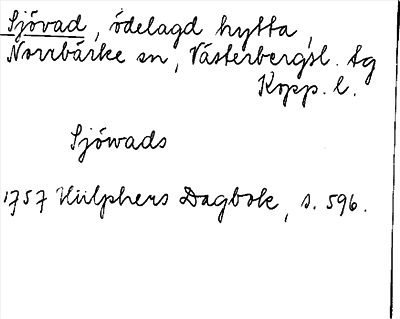 Sjövad, ödelagd hytta,
Norrbärke sn, Västerbergsl. tg
Kopp. l.
Sjöwads
1757 Hülphers Dagbok, s. 596.